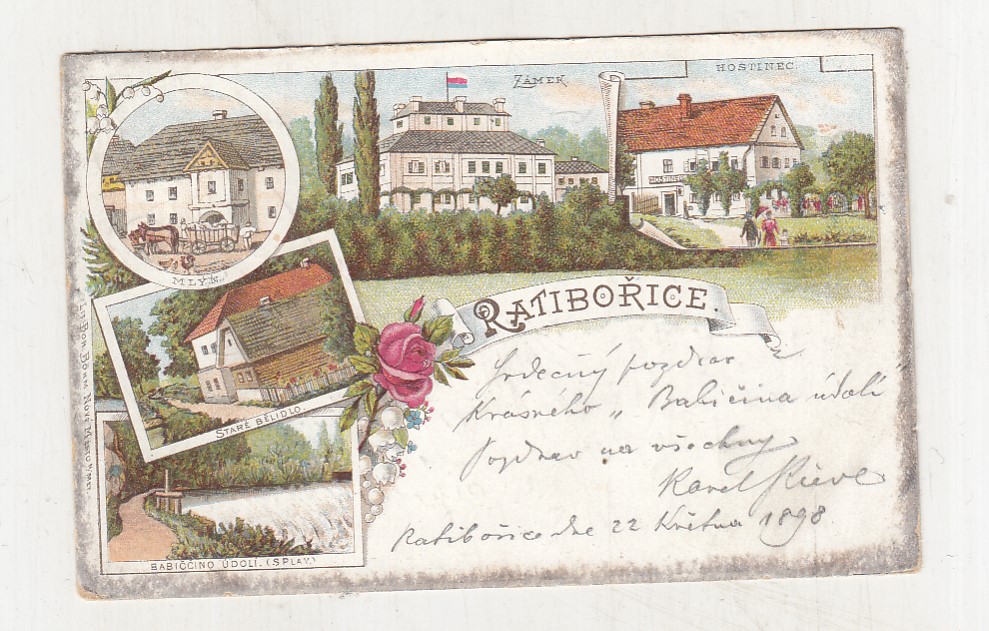 ZÁMEK
HOSTINEC.
HOSTINEC
MLÝN.
RATIBOŘICE.
STARÉ BĚLIDLO.
BABIČČINO ÚDOLÍ. (SPLAV.)
Srdečný pozdrav z
Krásného „Babičina údolí"
Pozdrav na všechny
Karel
Ratibořice dne 22 Května 1898
LIT. BOH. BÖHM, NOVÉ MĚSTO